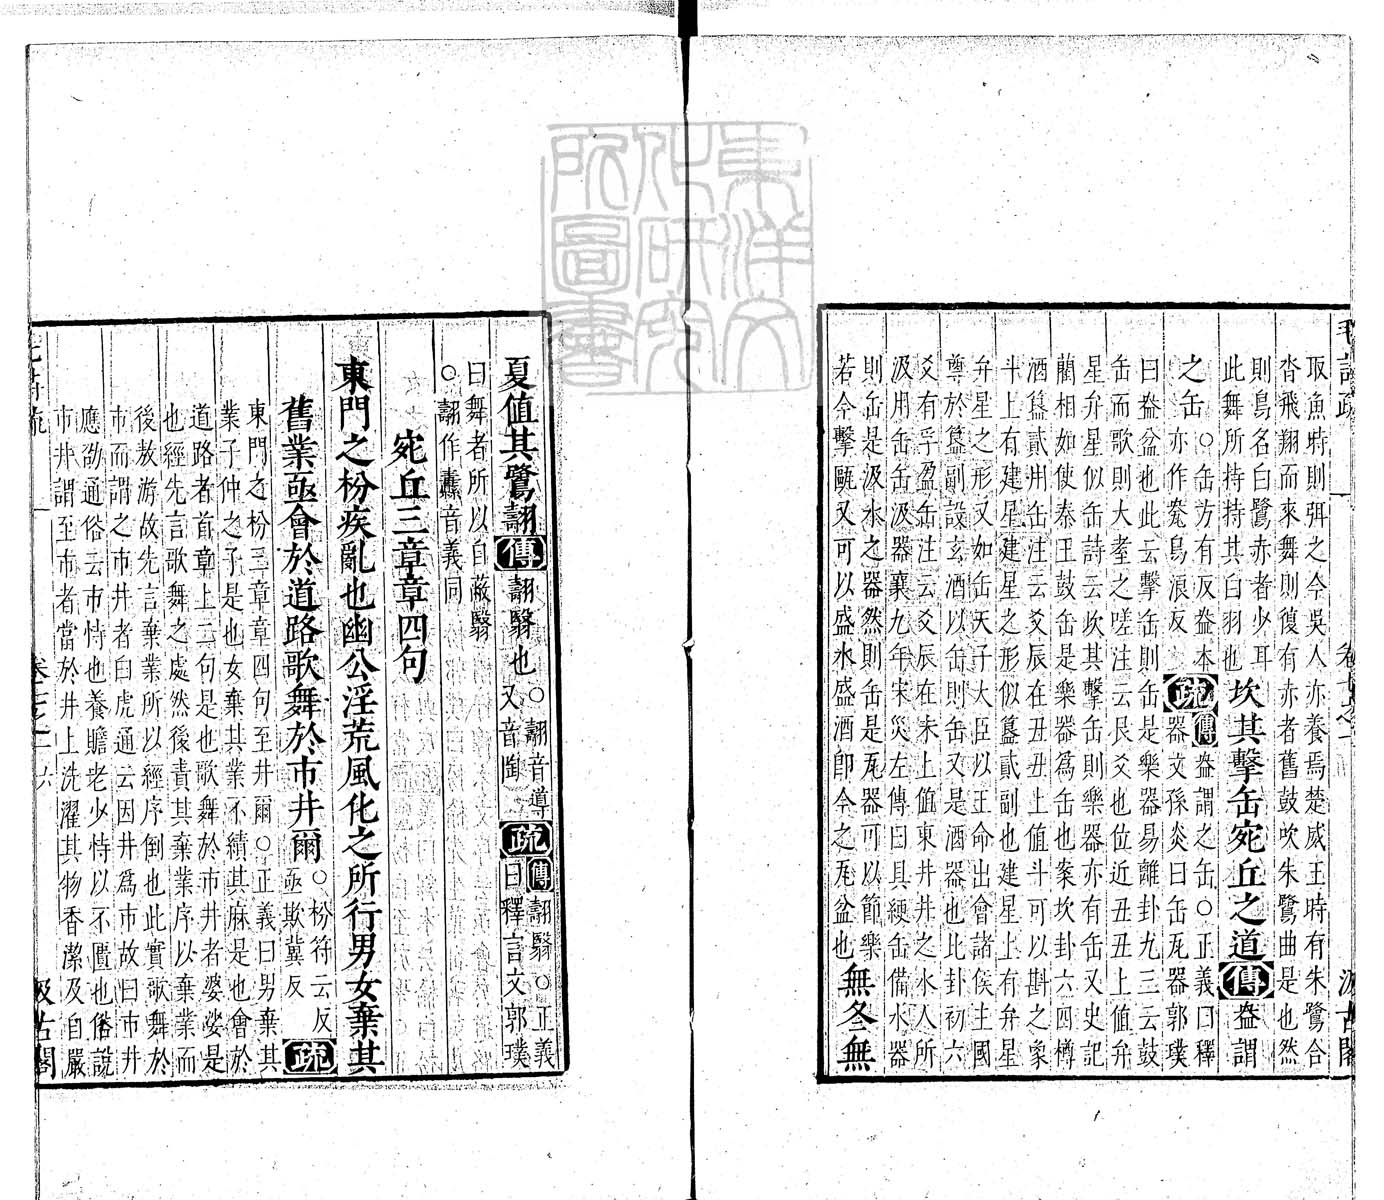 毛詩疏 卷七之一 汲古閣
取魚時則弭之今吳人亦養焉楚威王時有朱鷺合
沓飛翔而來舞則復有赤者舊鼓吹朱鷺曲是也然
則鳥名白鷺赤者少耳
此舞所持持其白羽也
坎其擊缶宛丘之道 傳 盎謂
之缶
○缶方有反盎本
亦作㼜烏浪反
疏 傳 盎謂之缶○正義曰釋
器文孫炎曰缶瓦器郭璞
曰盎盆也此云擊缶則缶是樂器易離卦九三云鼓
缶而歌則大耋之嗟注云艮爻也位近丑丑上值弁
星弁星似缶詩云坎其擊缶則樂器亦有缶又史記
藺相如使秦王鼓缶是樂器爲缶也案坎卦六四樽
酒簋貳用缶注云爻辰在丑丑上值斗可以斟之象
斗上有建星建星之形似簋貳副也建星上有弁星
弁星之形又如缶天子大臣以王命出會諸侯主國
尊於簋副設玄酒以缶則缶又是酒器也比卦初六
爻有孚盈缶注云爻辰在未上值東井井之水人所
汲用缶缶汲器襄九年宋災左傳曰具綆缶備水器
則缶是汲水之器然則缶是瓦器可以節樂
若今擊甌又可以盛水盛酒卽今之瓦盆也
無冬無
夏值其鷺翿 傳 翿翳也
○翿音導
又音陶
疏 傳 翿翳○正義
曰釋言文郭璞
曰舞者所以自蔽翳
○翿作纛音義同
宛丘三章章四句
東門之枌疾亂也幽公淫荒風化之所行男女棄其
舊業亟會於道路歌舞於市井爾
○枌符云反
亟欺冀反
疏
東門之枌三章章四句至井爾○正義曰男棄其
業子仲之子是也女棄其業不績其麻是也會於
道路者首章上二句是也歌舞於市井者婆娑是
也經先言歌舞之處然後責其棄業序以棄業而
後敖游故先言棄業所以經序倒也此實歌舞於
市而謂之市井者白虎通云因井爲市故曰市井
應劭通俗云市恃也養贍老少恃以不匱也俗說
市井謂至市者當於井上洗濯其物香潔及自嚴
毛詩疏 卷七之一 六 汲古閣
東洋文化研究院圖書